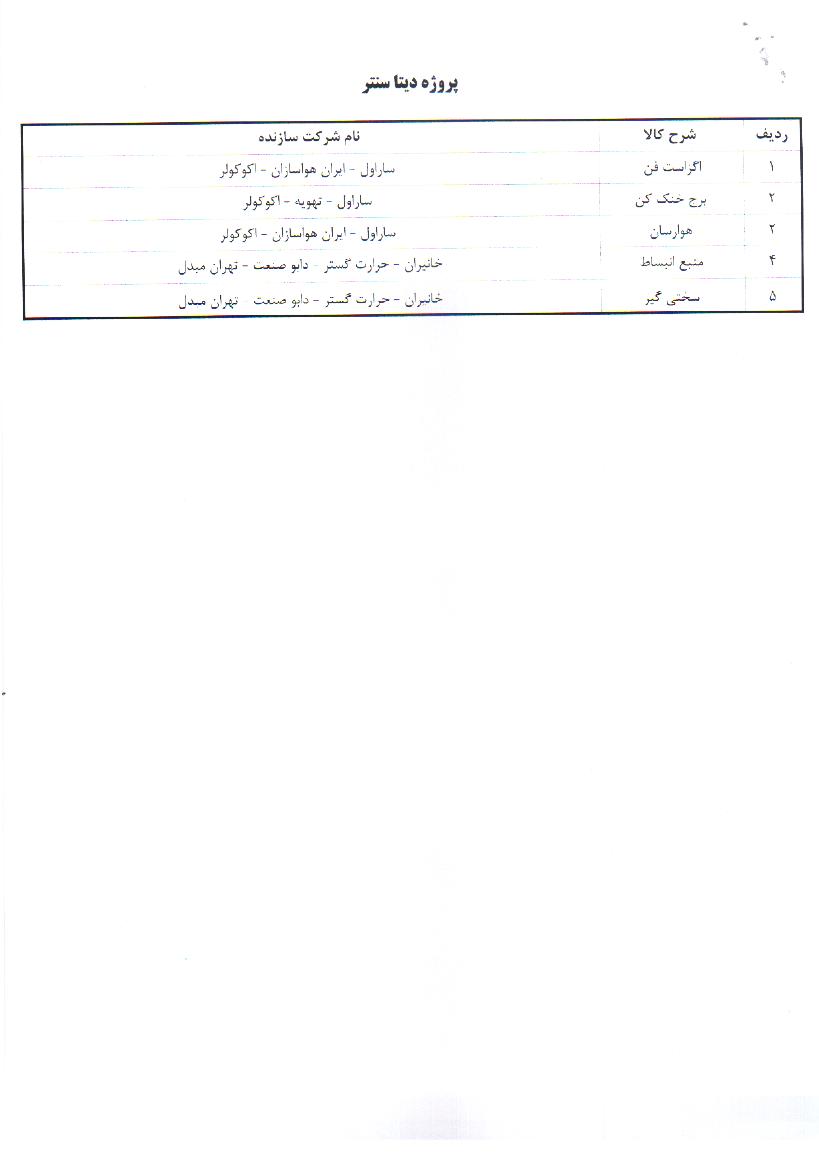 پروژه دیتا سنتر
ردیف شرح کالا نام شرکت سازنده
۱ اگزاست فن ساراول - ایران هواسازان - اکوکولر
۲ برج خنک کن ساراول - تهویه - اکوکولر
۲ هوارسان ساراول - ایران هواسازان - اکوکولر
۴ منبع انبساط خانیران - حرارت گستر - دابو صنعت - تهران مبدل
۵ سختی گیر خانیران - حرارت گستر - دابو صنعت - تهران مبدل